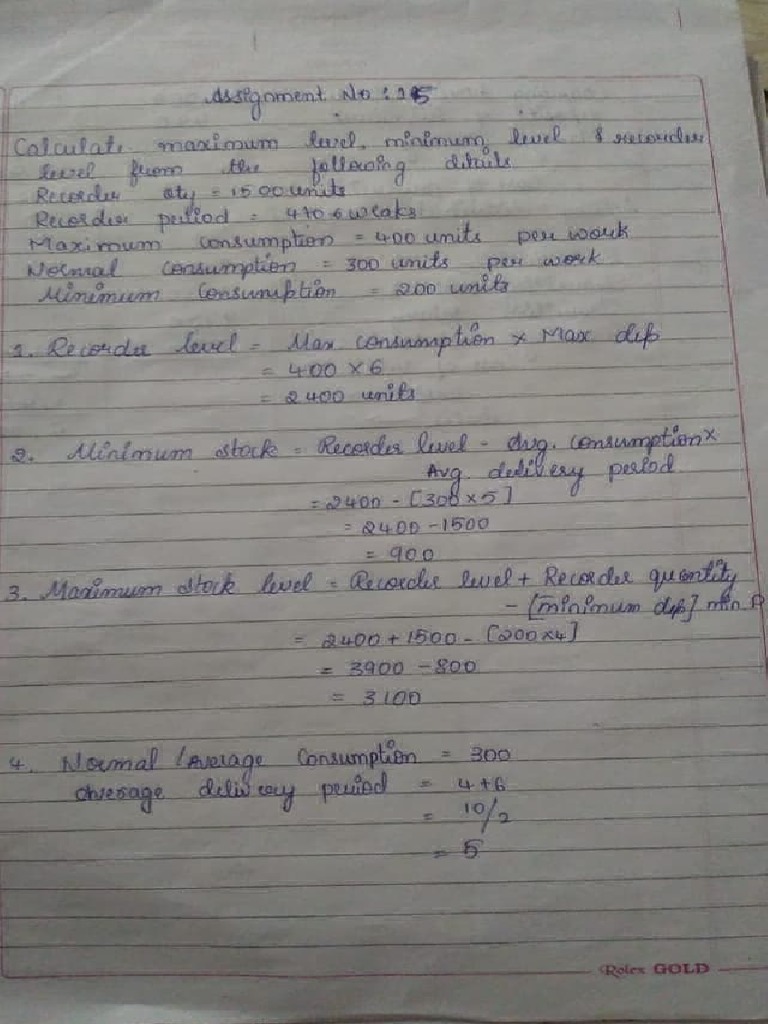 Assignment No : 25
Calculate maximum level, minimum level & recorder
level from the following details
Recorder qty = 1500 units
Recorder period = 4 to 6 weaks
Maximum consumption = 400 units per work
Normal consumption = 300 units per work
Minimum Consumption = 200 units
1. Recorder level = Max consumption × Max dep
= 400 × 6
= 2400 units
2. Minimum stock = Recorder level - Avg. consumption ×
Avg delivery period
= 2400 - [300 × 5]
= 2400 - 1500
= 900
3. Maximum stock level = Recorder level + Recorder quantity
- [minimum dep] min.
= 2400 + 1500 - [200 × 4]
= 3900 - 800
= 3100
4. Normal / Average Consumption = 300
average delivery period = 4 + 6
= 10/2
= 5
Rolex GOLD